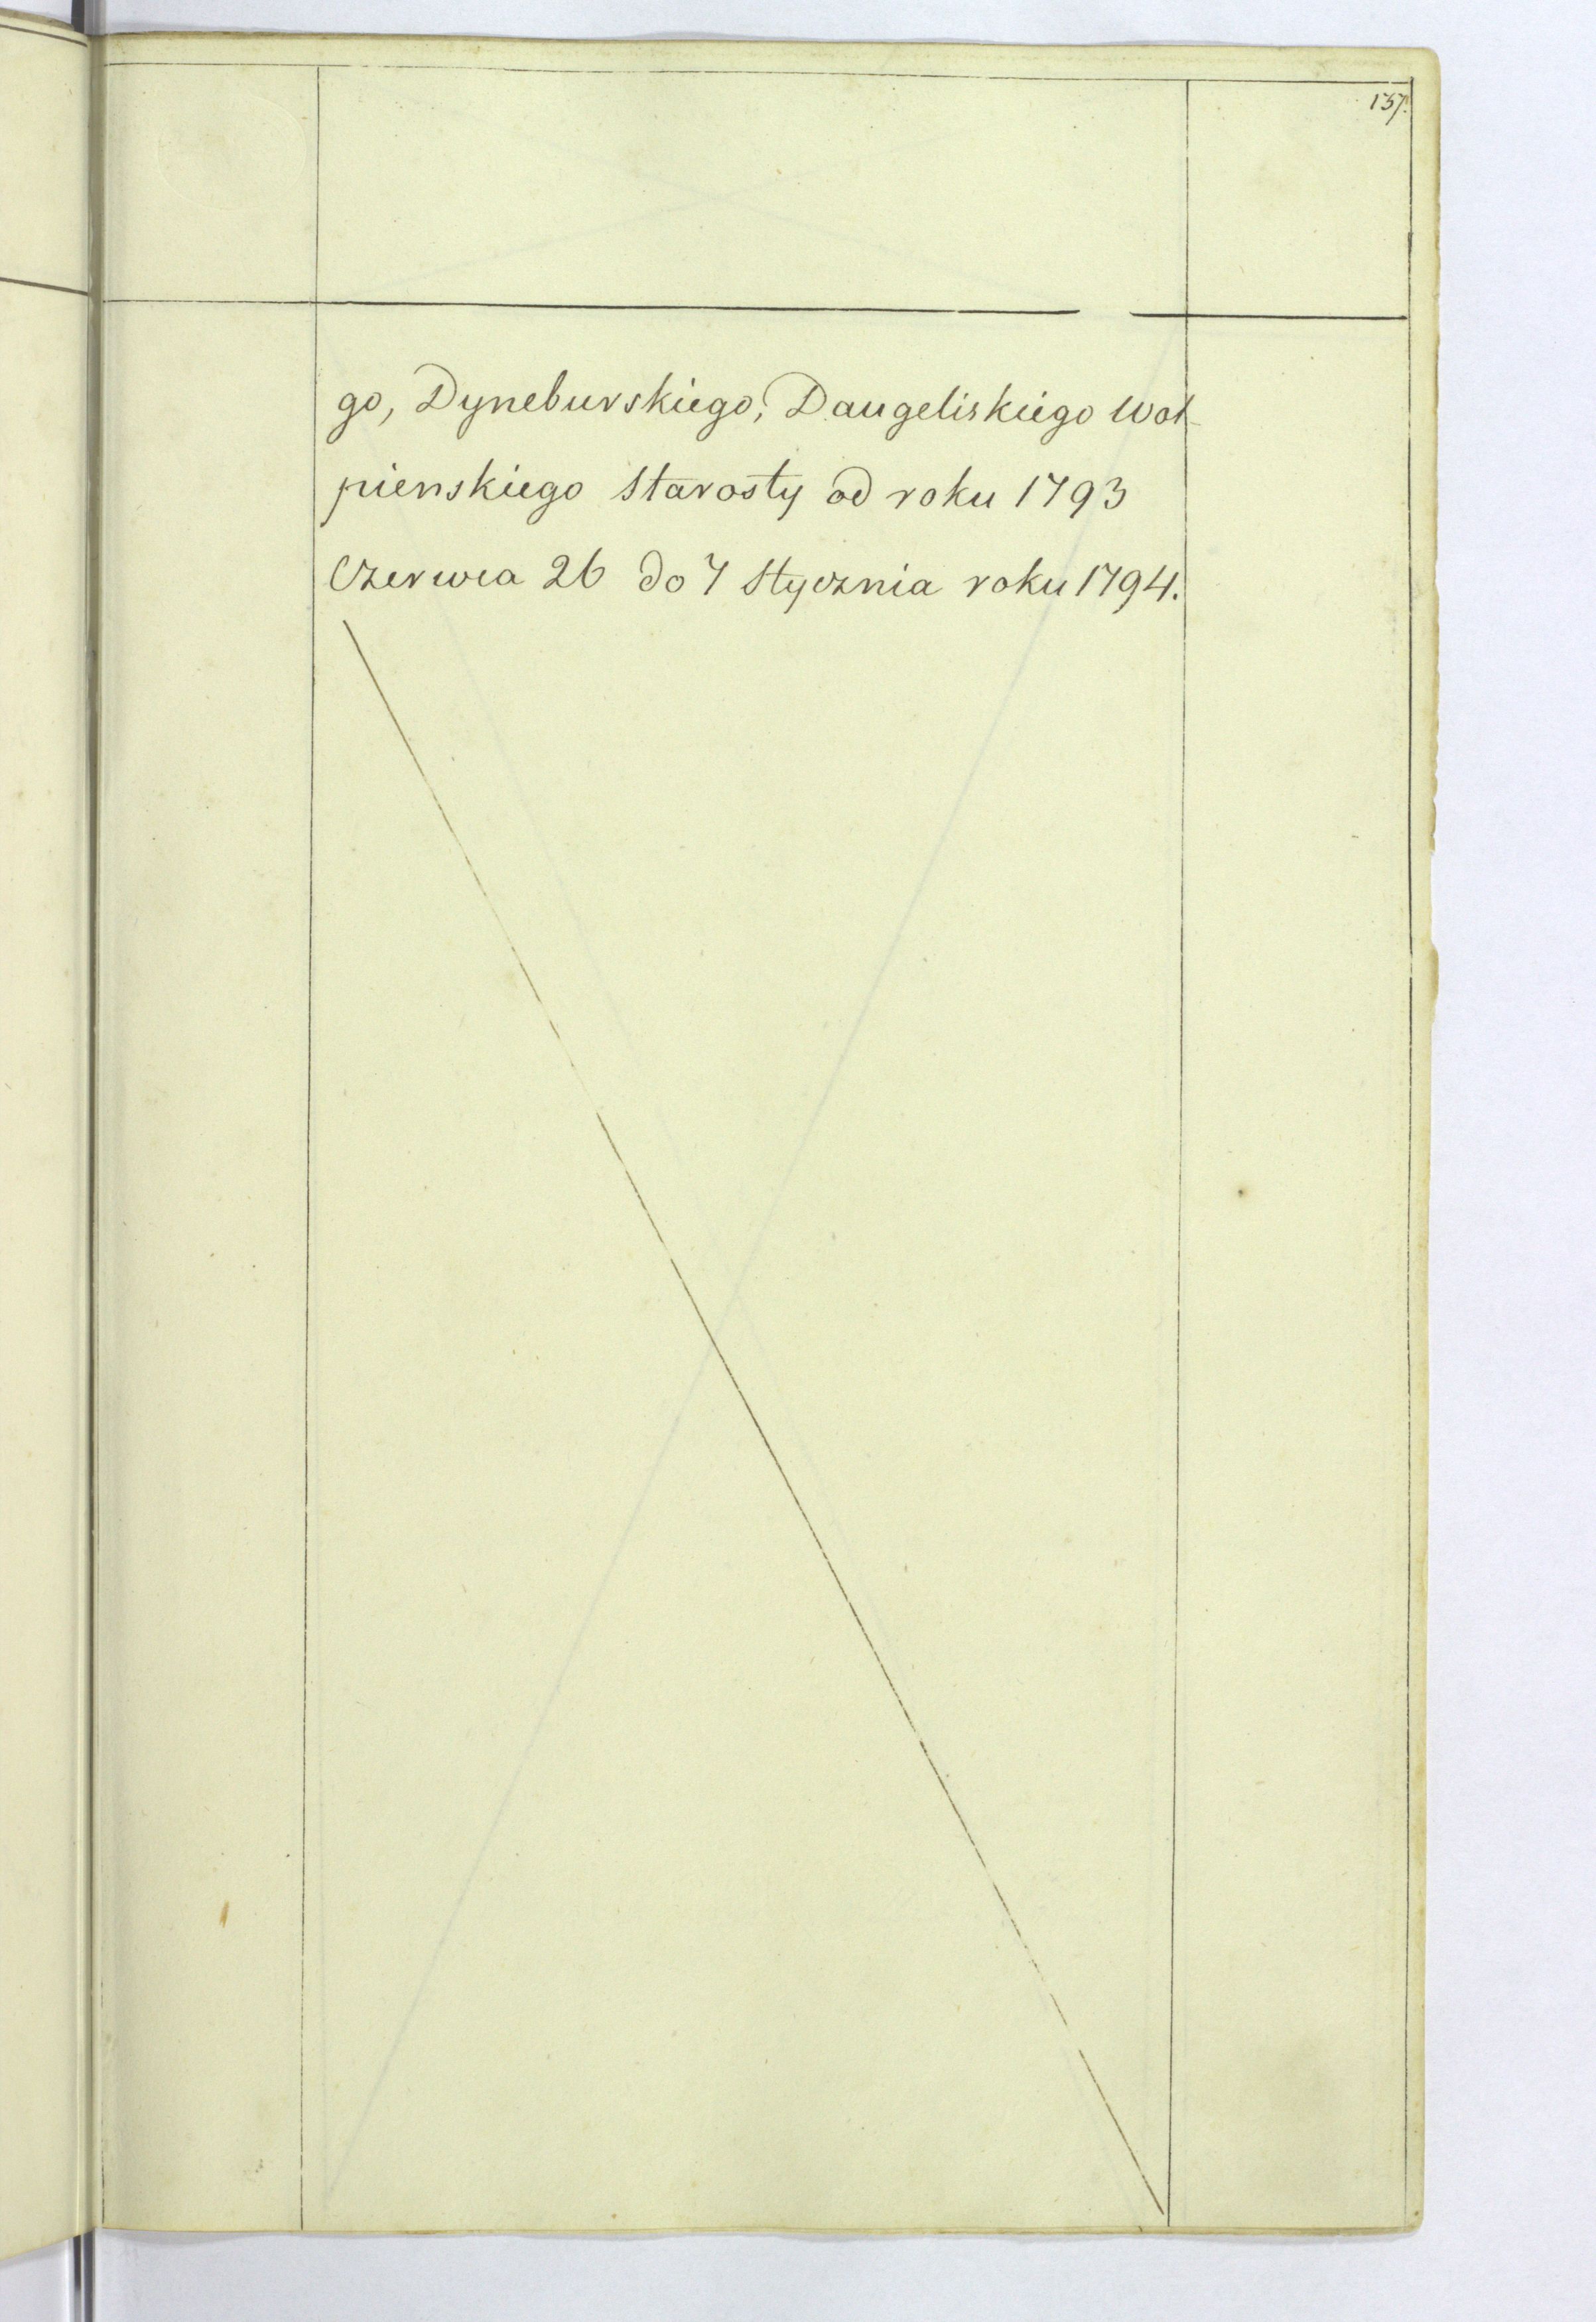 157.
go, Dyneburskiego, Daugeliskiego Woł-
pienskiego Starosty od roku 1793
Czerwca 26 do 7 Stycznia roku 1794.